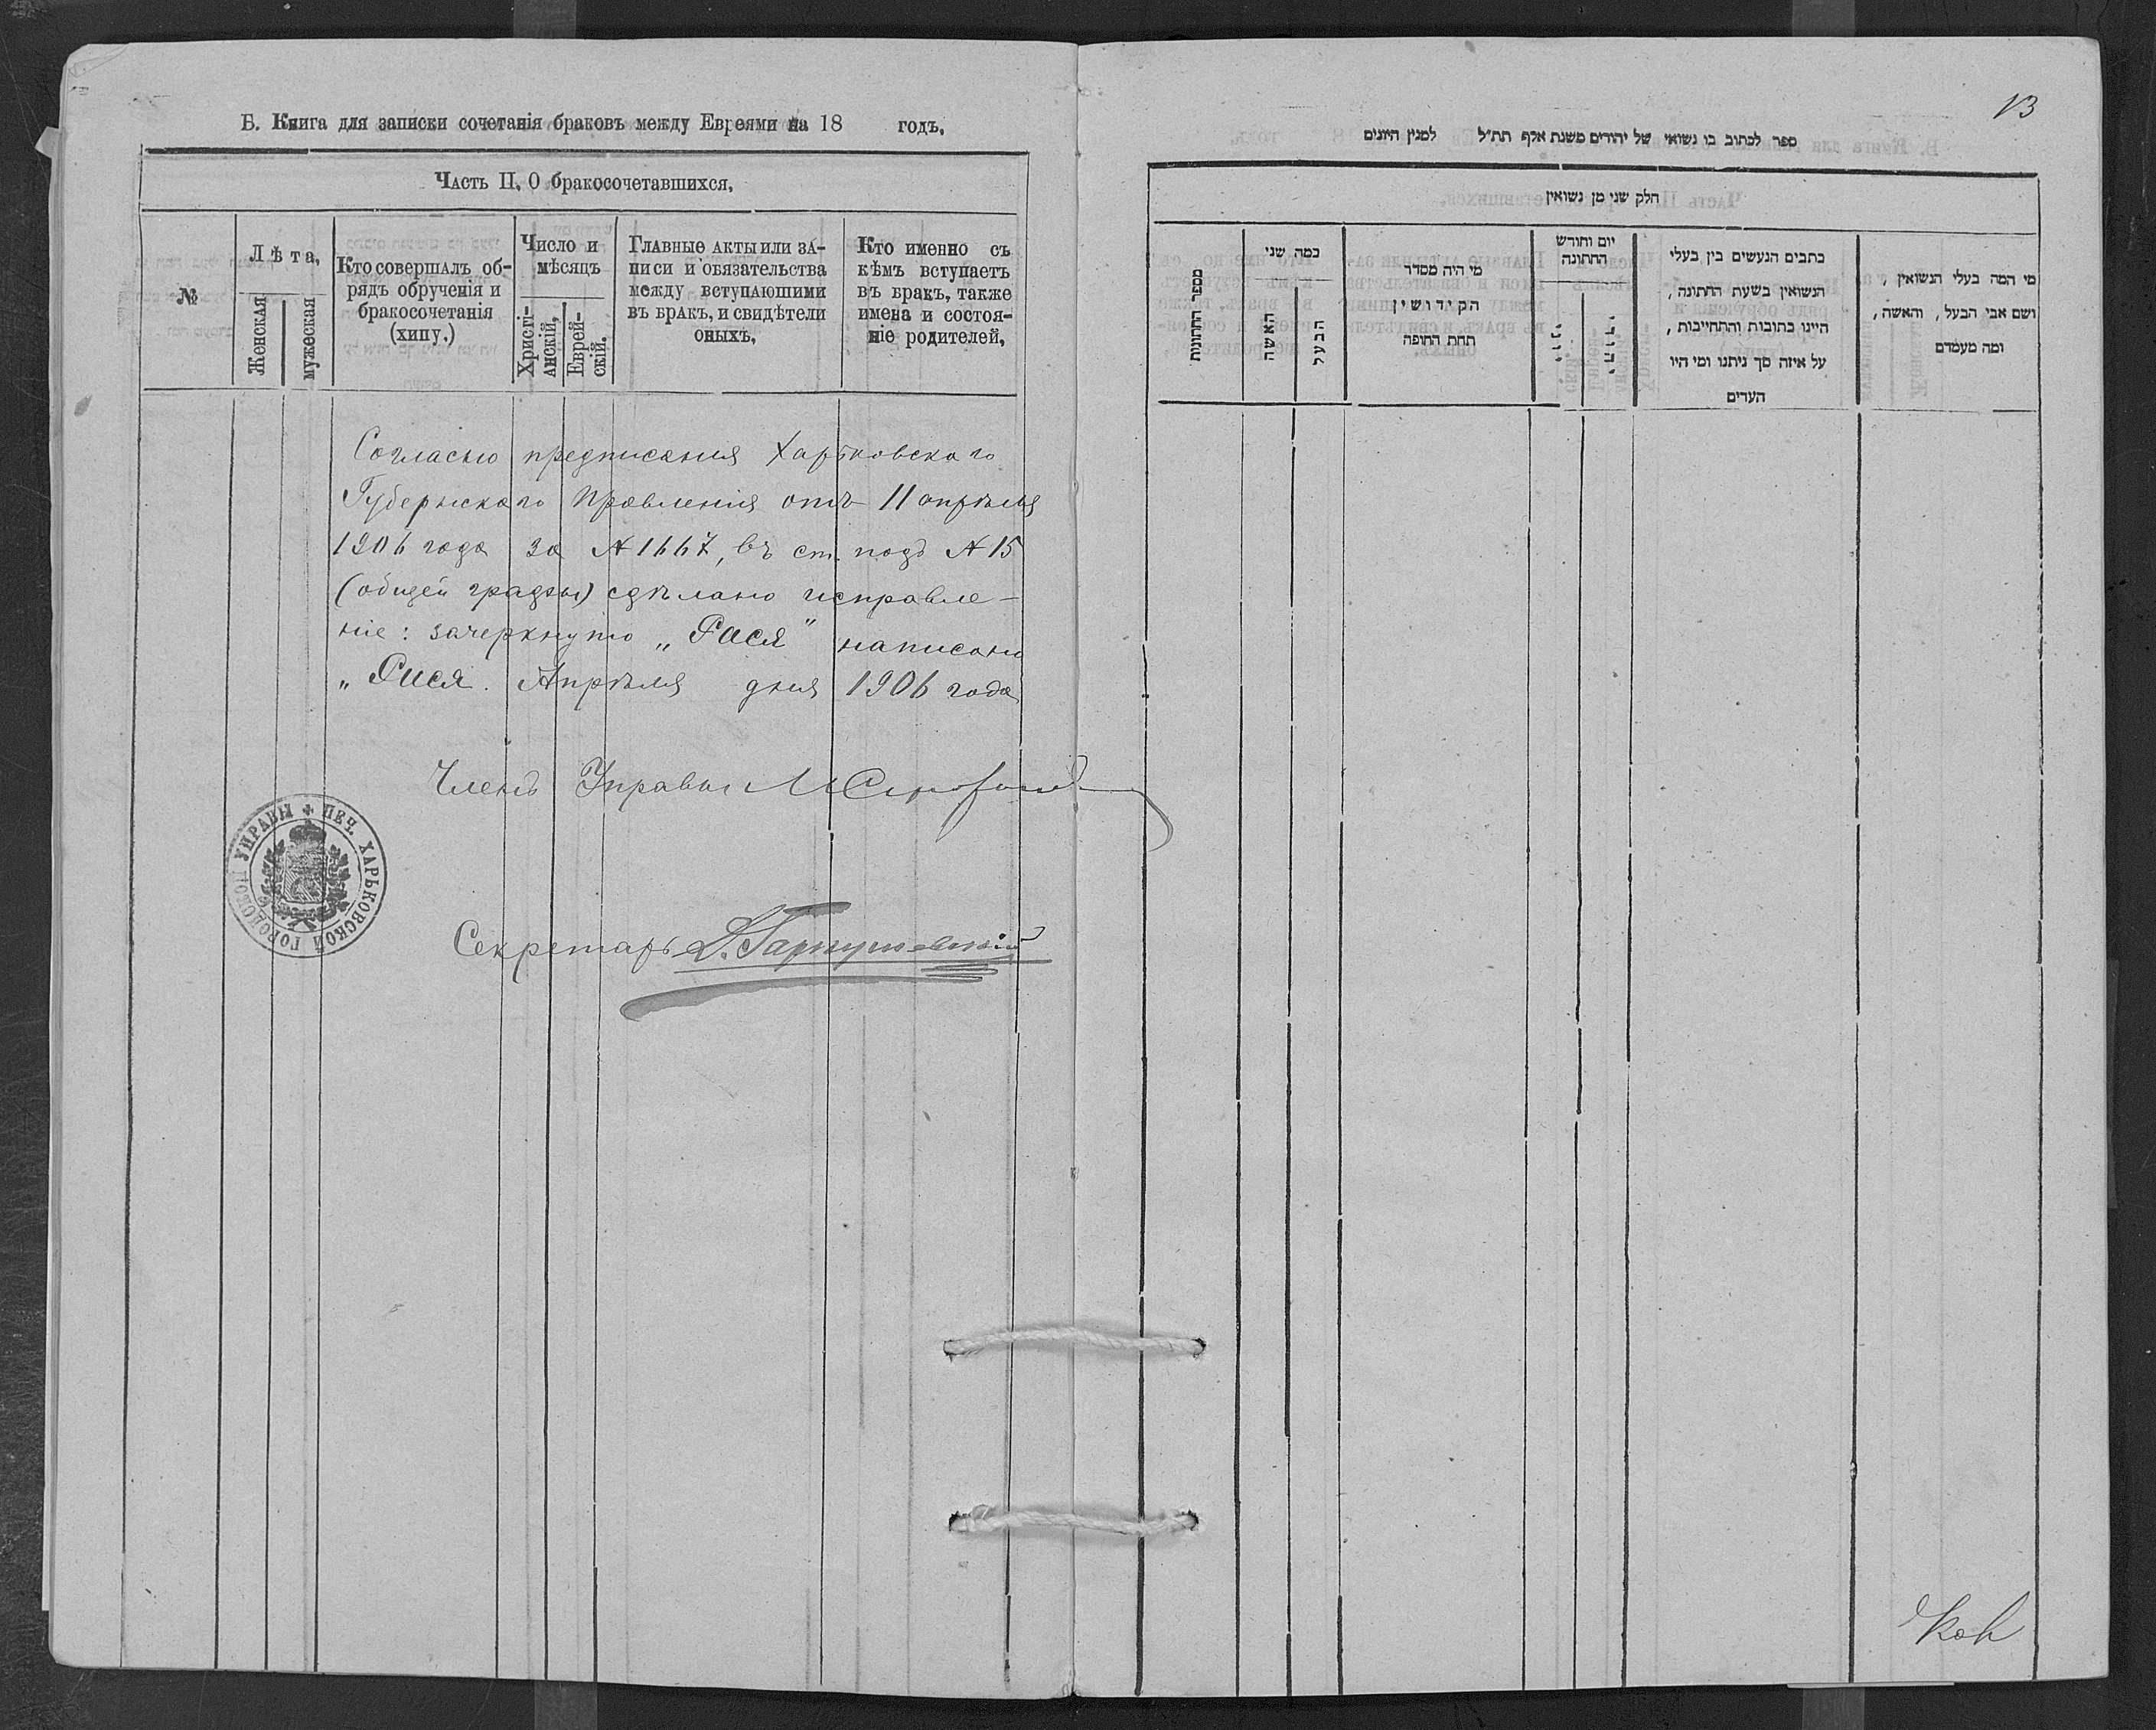 Б. Книга для записки сочетанія браковъ между Евреями на 18 годъ.
Часть II, О бракосочетавшихся,
№
Лѣта,
Женская
мужеская
Кто совершалъ об-
рядъ обрученія и
бракосочетанія
(хипу.)
Число и
мѣсяцъ
Христі-
анскій,
Еврей-
скій.
Главные акты или за-
писи и обязательства
между вступающими
въ бракъ, и свидѣтели
оныхъ,
Кто именно съ
кѣмъ вступаетъ
въ бракъ, также
имена и состоя-
ніе родителей,
Согласно предписанія Харьковскаго
Губернскаго Правленія отъ 11 апрѣля
1906 года за № 1667, въ ст. подъ № 15
(общей графы) сдѣлано исправле-
ніе: зачеркнуто „Рася" написано
„Рися. Апрѣля дня 1906 года
Членъ Управы
ПЕЧ. ХАРЬКОВСКОЙ ГОРОДСКОЙ УПРАВЫ
Секретарь
13
ספר לכתוב בו נשואי של יהודים משנת אלף תת״ל למנין היונים
חלק שני מן נשואין
מספר החתונות
כמה שני
האשה
הבעל
מי היה מסדר
הקידושין
תחת החופה
יום וחודש
החתונה
יוני
יהודי
כתבים הנעשים בין בעלי
הנשואין בשעת החתונה,
היינו כתובות והתחייבות,
על איזה סך ניתנו ומי היו
העדים
מי המה בעלי הנשואין,
ושם אבי הבעל, והאשה,
ומה מעמדם